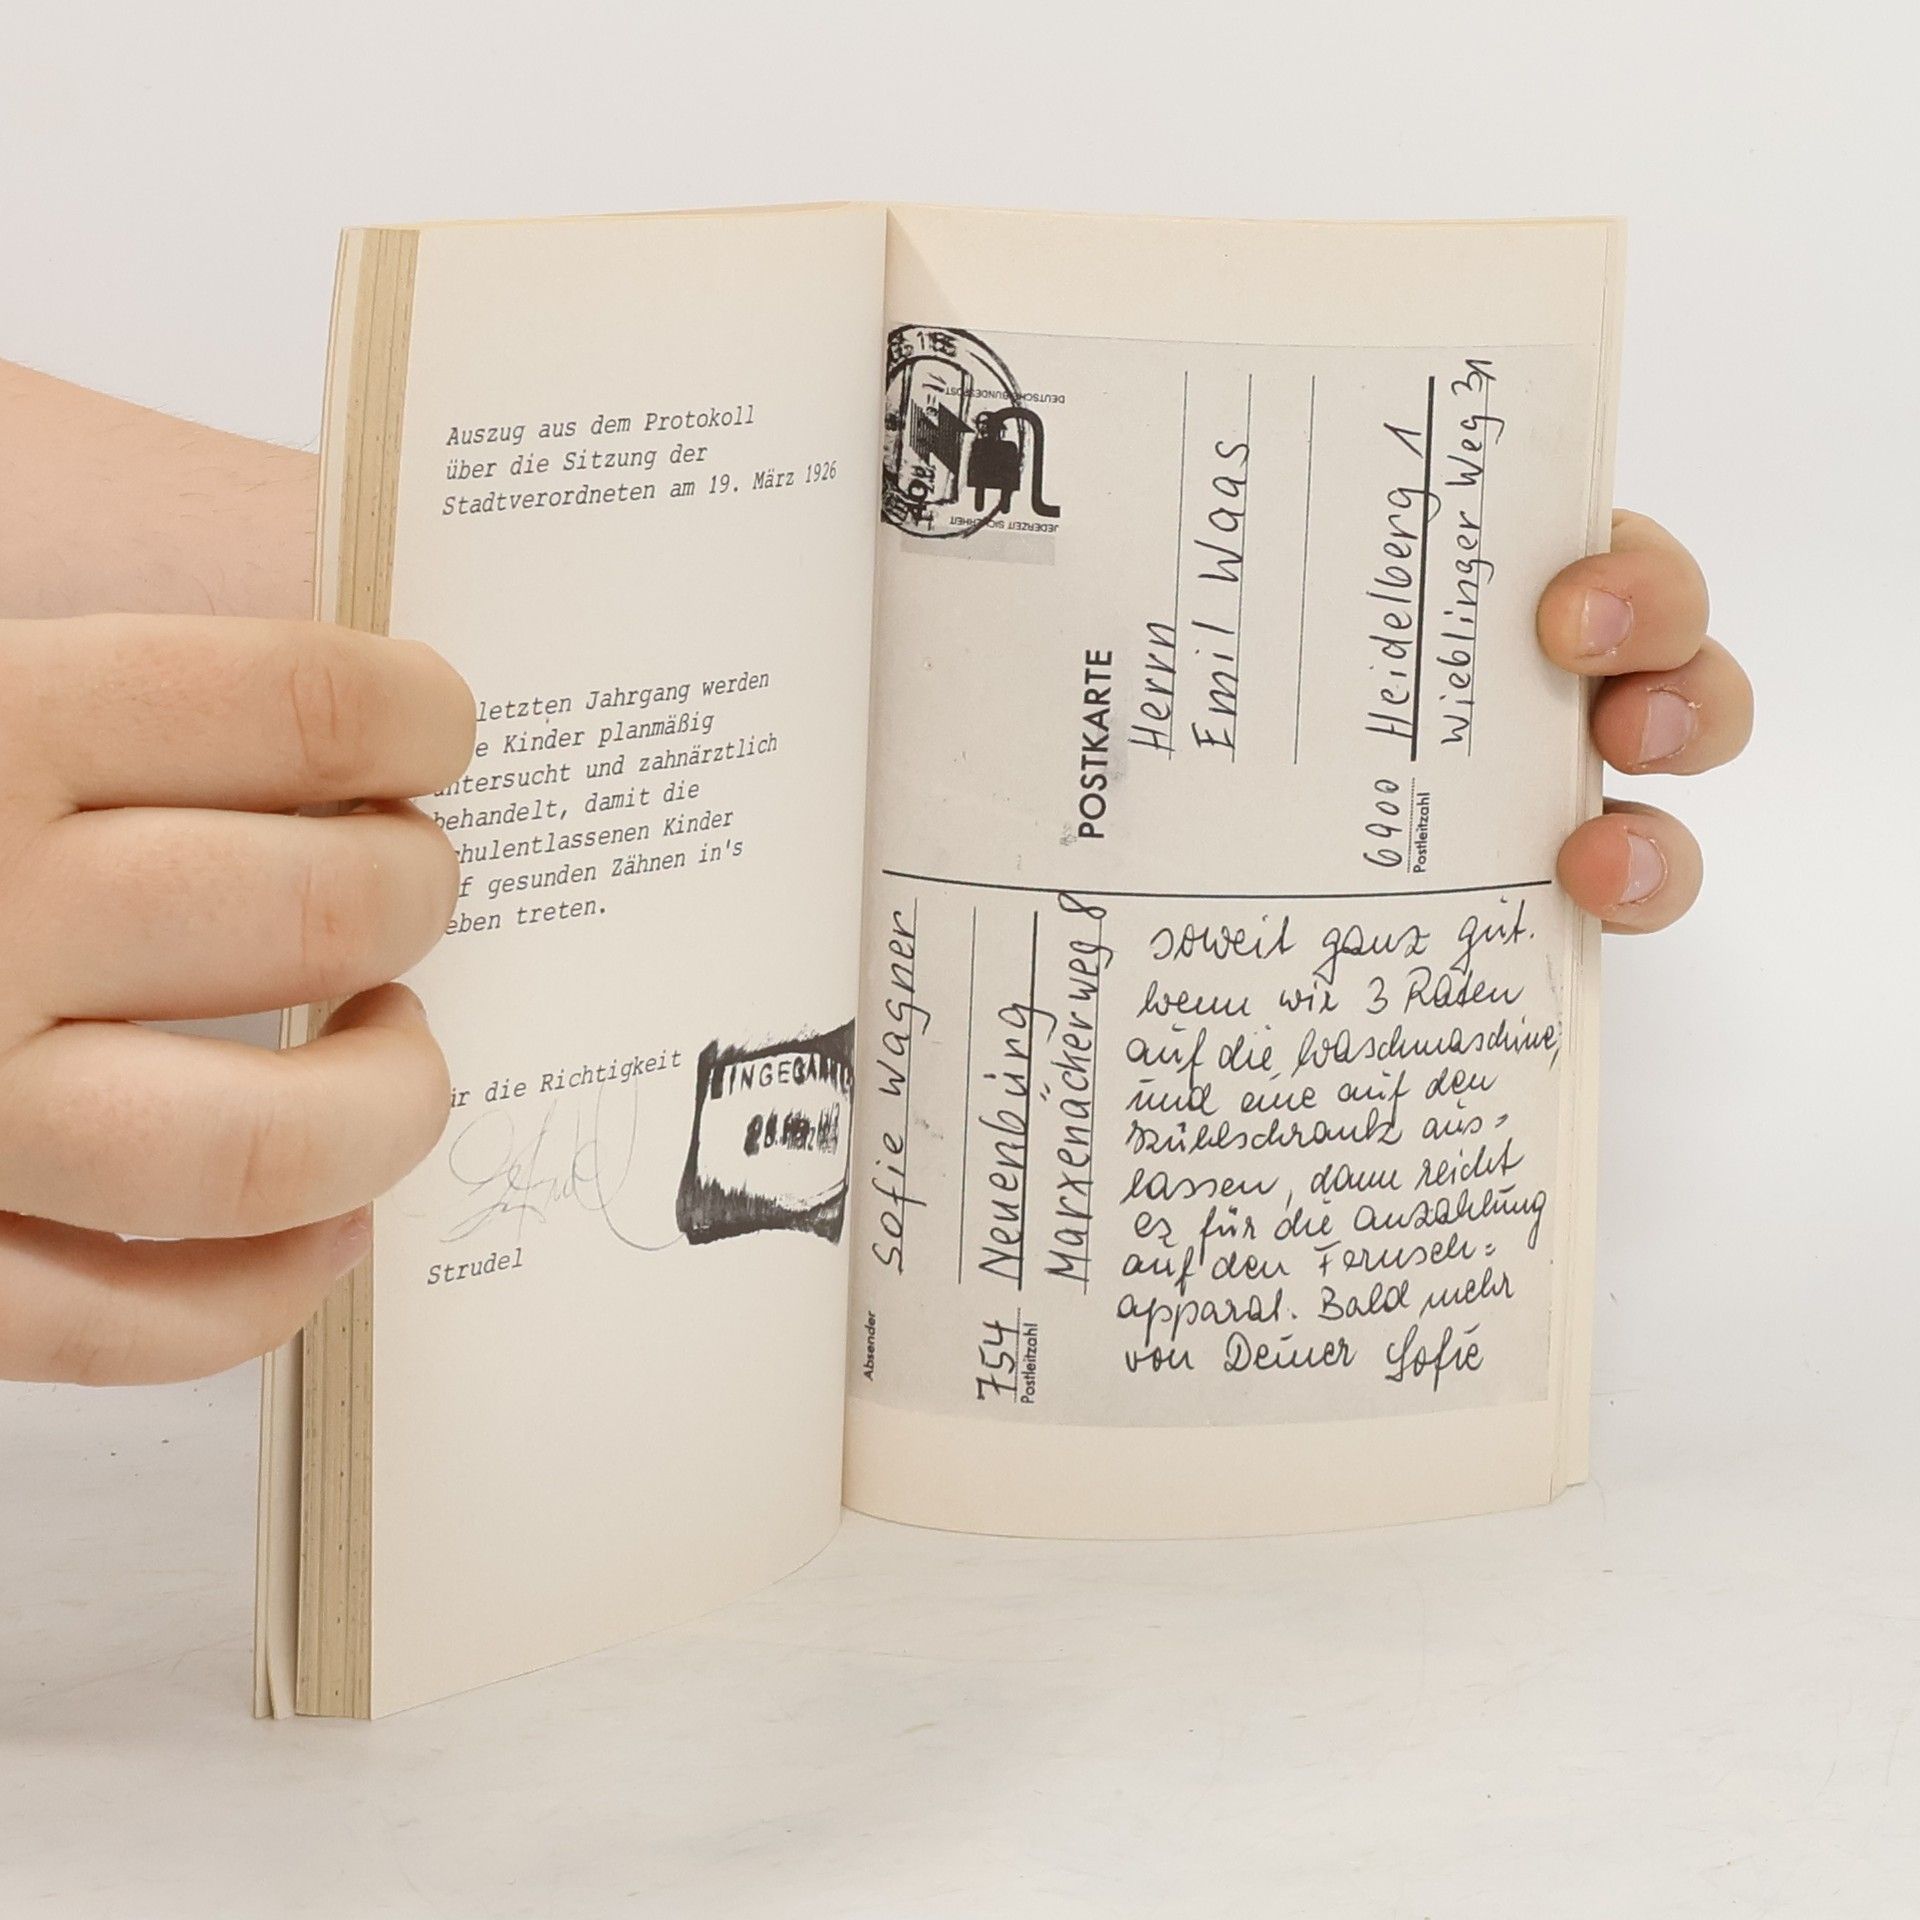 Auszug aus dem Protokoll
über die Sitzung der
Stadtverordneten am 19. März 1926
letzten Jahrgang werden
e Kinder planmäßig
untersucht und zahnärztlich
behandelt, damit die
chulentlassenen Kinder
f gesunden Zähnen in's
eben treten.
ür die Richtigkeit
EINGEGANG
Strudel
DEUTSCHE BUNDESPOST
JEDERZEIT SICHERHEIT
POSTKARTE
Herrn
Emil Waas
6900 Heidelberg 1
Postleitzahl
Wieblinger Weg 31
Absender
Sofie Wagner
754 Neuenbürg
Postleitzahl
Marxenäckerweg 8
soweit ganz gut.
Wenn wir 3 Raten
auf die Waschmaschine,
und eine auf den
Kühlschrank aus=
lassen, dann reicht
es für die Anzahlung
auf den Fernseh=
apparat. Bald mehr
von Deiner Sofie